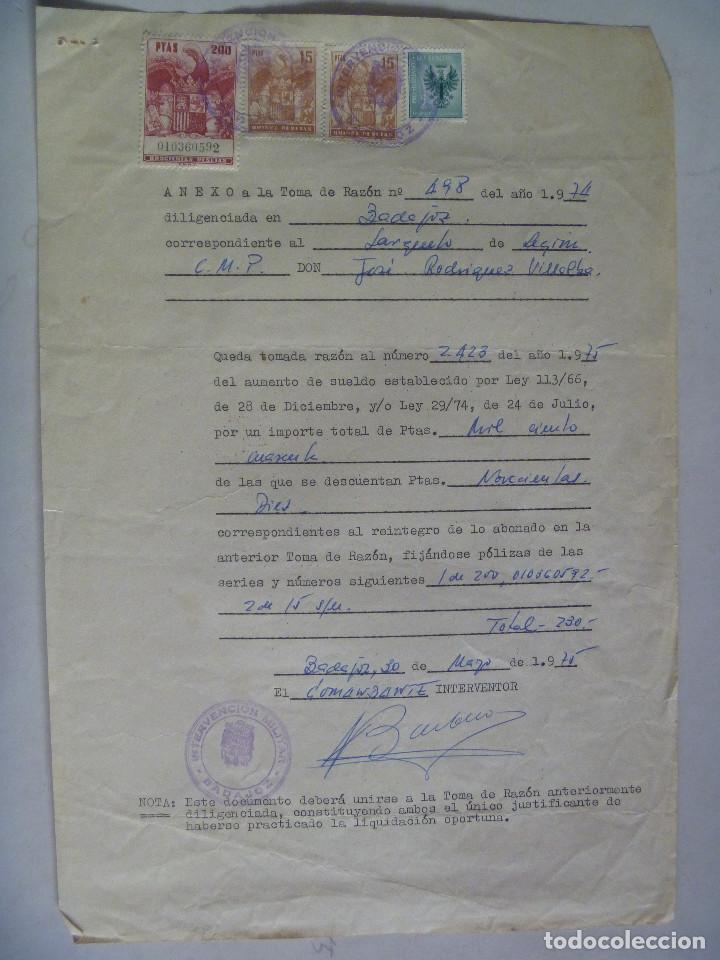 PTAS 200
15 PTAS
PTAS 15
010360592
DOSCIENTAS PESETAS
QUINCE PESETAS
QUINCE PESETAS
ANEXO a la Toma de Razón nº 498 del año 1.974
diligenciada en Badajoz.
correspondiente al Sargento de Legión
C.M.P. DON José Rodriguez Villalba.
Queda tomada razón al número 2423 del año 1.975
del aumento de sueldo establecido por Ley 113/66,
de 28 de Diciembre, y/o Ley 29/74, de 24 de Julio,
por un importe total de Ptas. Mil ciento
cuarenta
de las que se descuentan Ptas. Novecientas
Diez.
correspondientes al reintegro de lo abonado en la
anterior Toma de Razón, fijándose pólizas de las
series y números siguientes 1 de 200, 010360592.-
2 de 15 s/n.
Total - 230.-
Badajoz, 20 de Mayo de 1.975
El COMANDANTE INTERVENTOR
INTERVENCIÓN MILITAR
BADAJOZ
NOTA: Este documento deberá unirse a la Toma de Razón anteriormente
diligenciada, constituyendo ambos el único justificante de
haberse practicado la liquidación oportuna.
todocoleccion